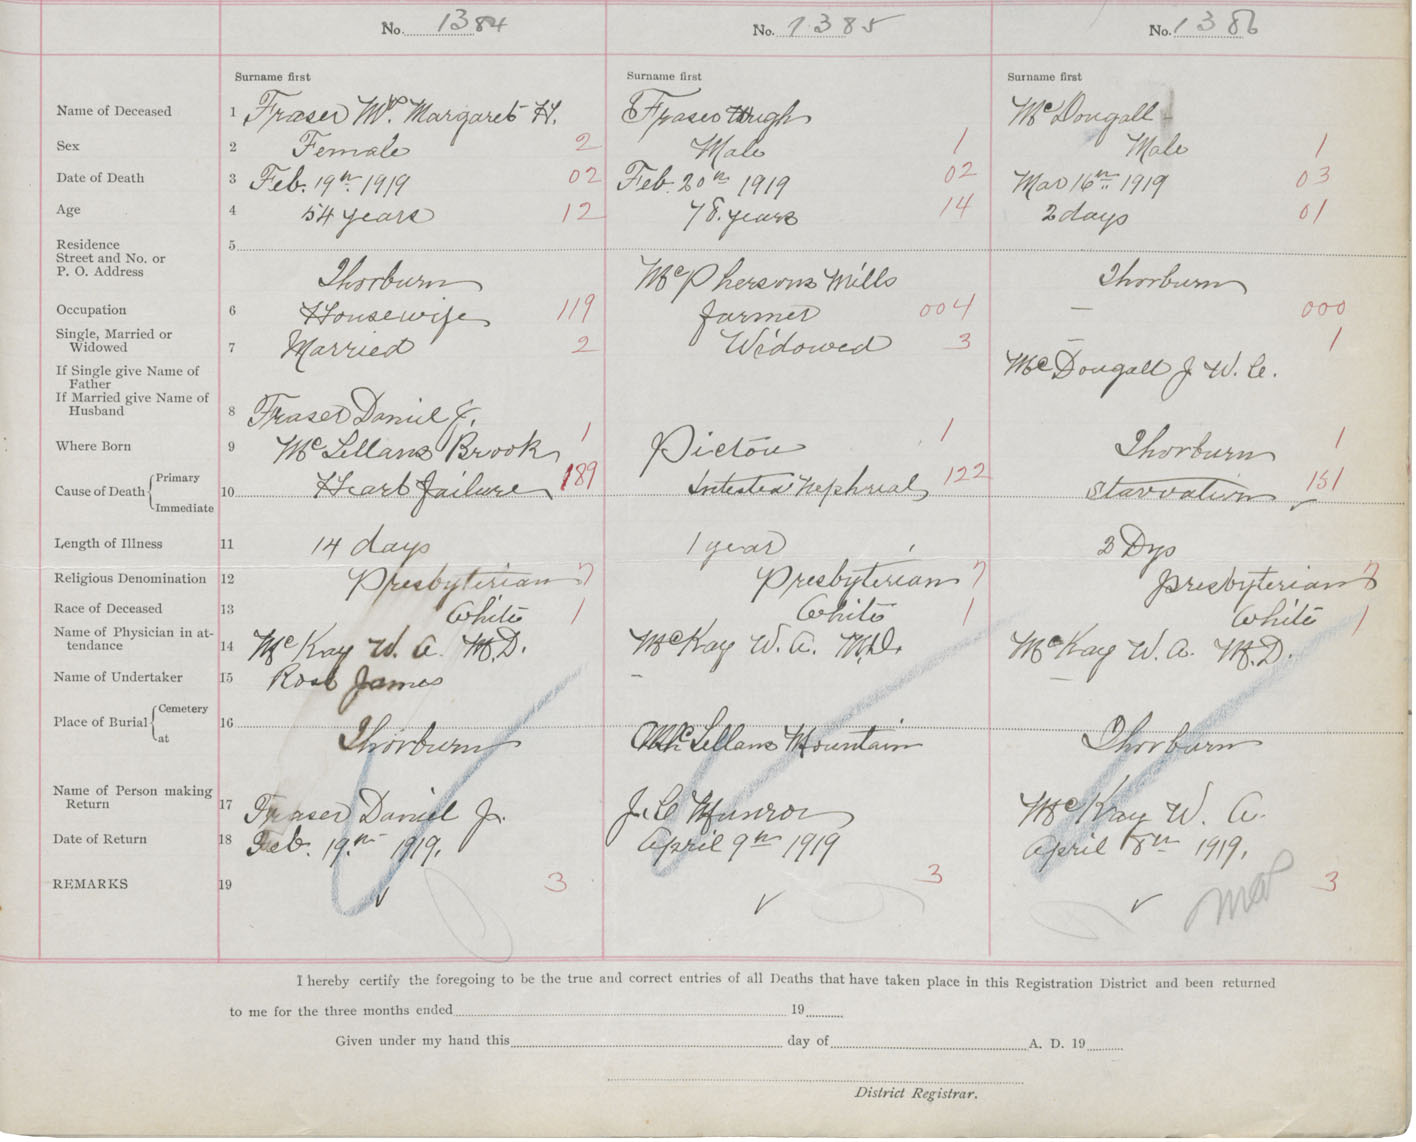 No. 1384 No. 1385 No. 1386
Surname first Surname first Surname first
Name of Deceased 1 Fraser Mrs. Margaret H. Fraser Hugh McDougall
Sex 2 Female 2 Male 1 Male 1
Date of Death 3 Feb. 19th 1919 02 Feb. 20th 1919 02 Mar 16th 1919 03
Age 4 54 years 12 78 years 14 2 days 01
Residence 5
Street and No. or
P. O. Address Thorburn McPhersons Mills Thorburn
Occupation 6 Housewife 119 farmer 004 — 000
Single, Married or
Widowed 7 Married 2 Widowed 3 — 1
If Single give Name of
Father McDougall J. W. C.
If Married give Name of
Husband 8 Fraser Daniel J. 1 1
Where Born 9 McLellans Brook Pictou Thorburn 1
Cause of Death { Primary
10 Heart failure 189 Intested Nephrial 122 Starvation 151
Immediate
Length of Illness 11 14 days 1 year 2 Dys
Religious Denomination 12 Presbyterian 7 Presbyterian 7 Presbyterian 7
Race of Deceased 13 White 1 White 1 White 1
Name of Physician in at-
tendance 14 McKay W. A. M.D. McKay W. A. M.D. McKay W. A. M.D.
Name of Undertaker 15 Ross James — —
Place of Burial { Cemetery 16
at Thorburn McLellans Mountain Thorburn
Name of Person making
Return 17 Fraser Daniel J. J. C. Munroe McKay W. A.
Date of Return 18 Feb. 19th 1919. April 9th 1919 April 8th 1919.
REMARKS 19 3 3 3
I hereby certify the foregoing to be the true and correct entries of all Deaths that have taken place in this Registration District and been returned
to me for the three months ended 19
Given under my hand this day of A. D. 19
District Registrar.